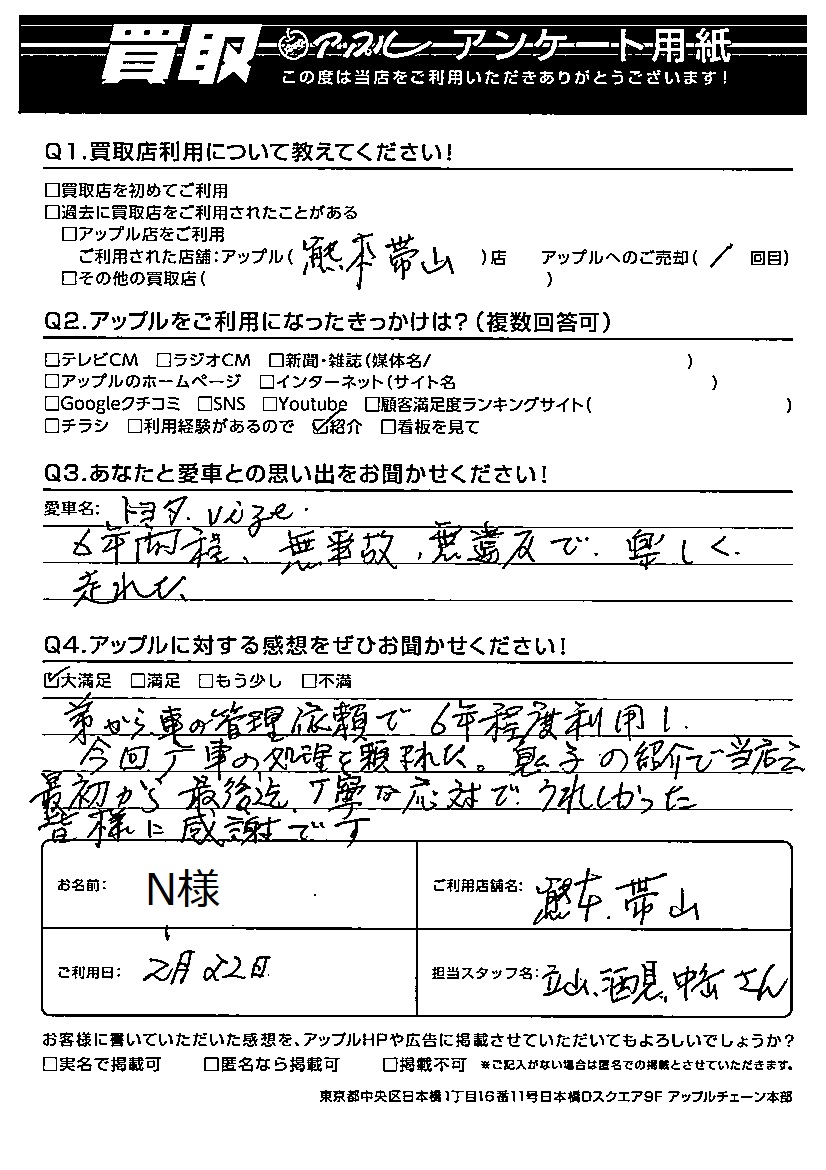 買取 アップル アンケート用紙
この度は当店をご利用いただきありがとうございます!
Q1.買取店利用について教えてください!
□買取店を初めてご利用
□過去に買取店をご利用されたことがある
□アップル店をご利用
ご利用された店舗:アップル( 熊本帯山 )店 アップルへのご売却( / 回目)
□その他の買取店( )
Q2.アップルをご利用になったきっかけは?(複数回答可)
□テレビCM □ラジオCM □新聞・雑誌(媒体名/ )
□アップルのホームページ □インターネット(サイト名 )
□Googleクチコミ □SNS □Youtube □顧客満足度ランキングサイト( )
□チラシ □利用経験があるので ☑紹介 □看板を見て
Q3.あなたと愛車との思い出をお聞かせください!
愛車名: トヨタ. vize.
6年間程、無事故、無違反で、楽しく
走れた、
Q4.アップルに対する感想をぜひお聞かせください!
☑大満足 □満足 □もう少し □不満
弟から車の管理依頼で6年程度利用し
今回 車の処理を頼まれた。息子の紹介で当店に
最初から最後迄、丁寧な応対でうれしかった
皆様に感謝です
お名前: N様
ご利用店舗名: 熊本、帯山
ご利用日: 2月22日
担当スタッフ名: 立山、酒見、中缶さん
お客様に書いていただいた感想を、アップルHPや広告に掲載させていただいてもよろしいでしょうか?
□実名で掲載可 □匿名なら掲載可 □掲載不可 ※ご記入がない場合は匿名での掲載とさせていただきます。
東京都中央区日本橋1丁目16番11号日本橋Dスクエア9F アップルチェーン本部